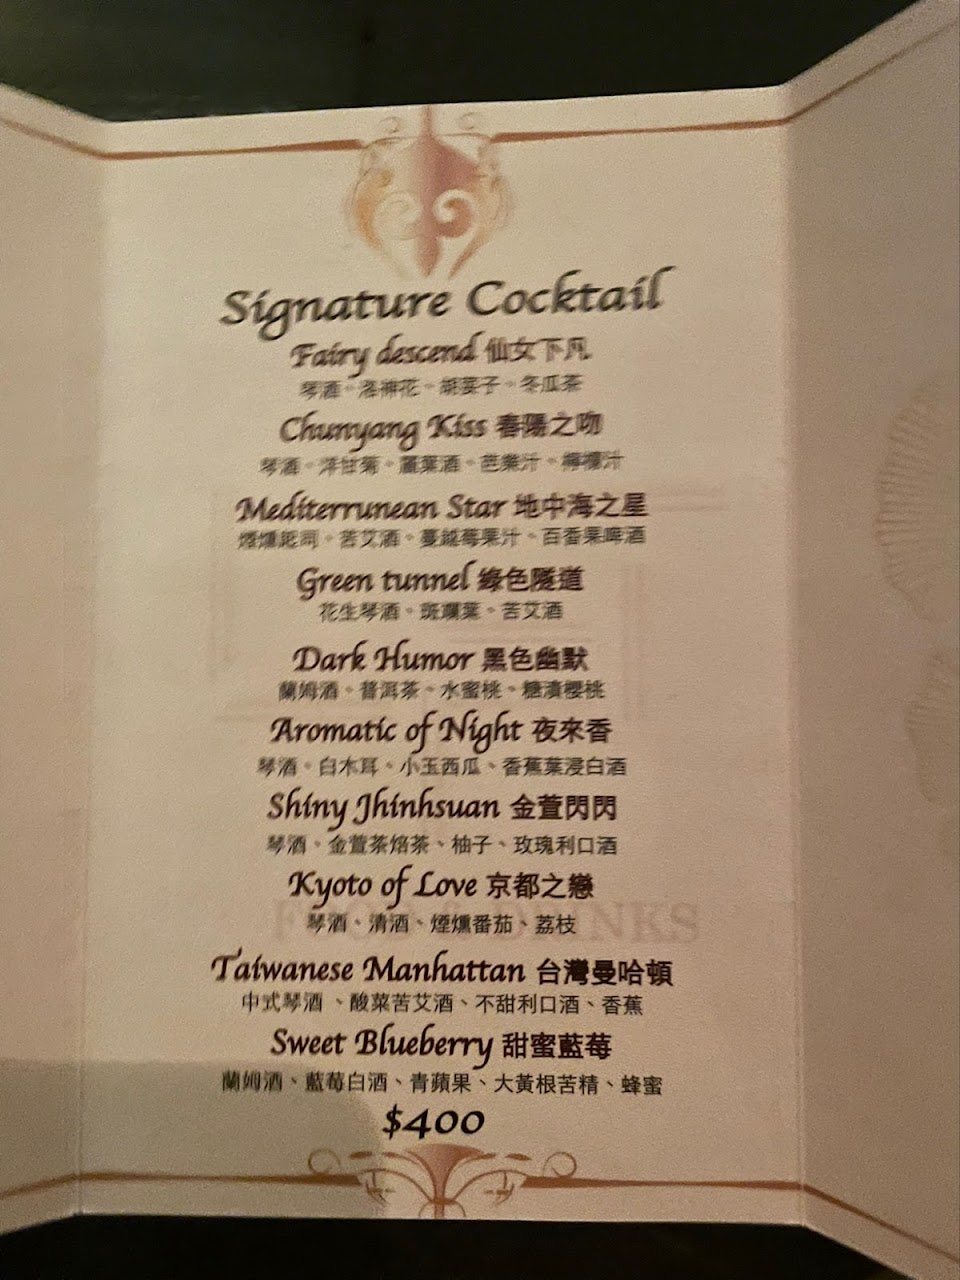 Signature Cocktail
Fairy descend 仙女下凡
琴酒、洛神花、胡荽子、冬瓜茶
Chunyang Kiss 春陽之吻
琴酒、洋甘菊、蘆葉酒、芭樂汁、檸檬汁
Mediterrunean Star 地中海之星
煙燻起司、苦艾酒、蔓越莓果汁、百香果啤酒
Green tunnel 綠色隧道
花生琴酒、斑斕葉、苦艾酒
Dark Humor 黑色幽默
蘭姆酒、普洱茶、水蜜桃、糖漬櫻桃
Aromatic of Night 夜來香
琴酒、白木耳、小玉西瓜、香蕉葉浸白酒
Shiny Jhinhsuan 金萱閃閃
琴酒、金萱茶焙茶、柚子、玫瑰利口酒
Kyoto of Love 京都之戀
琴酒、清酒、煙燻番茄、荔枝
Taiwanese Manhattan 台灣曼哈頓
中式琴酒、酸菜苦艾酒、不甜利口酒、香蕉
Sweet Blueberry 甜蜜藍莓
蘭姆酒、藍莓白酒、青蘋果、大黃根苦精、蜂蜜
$400